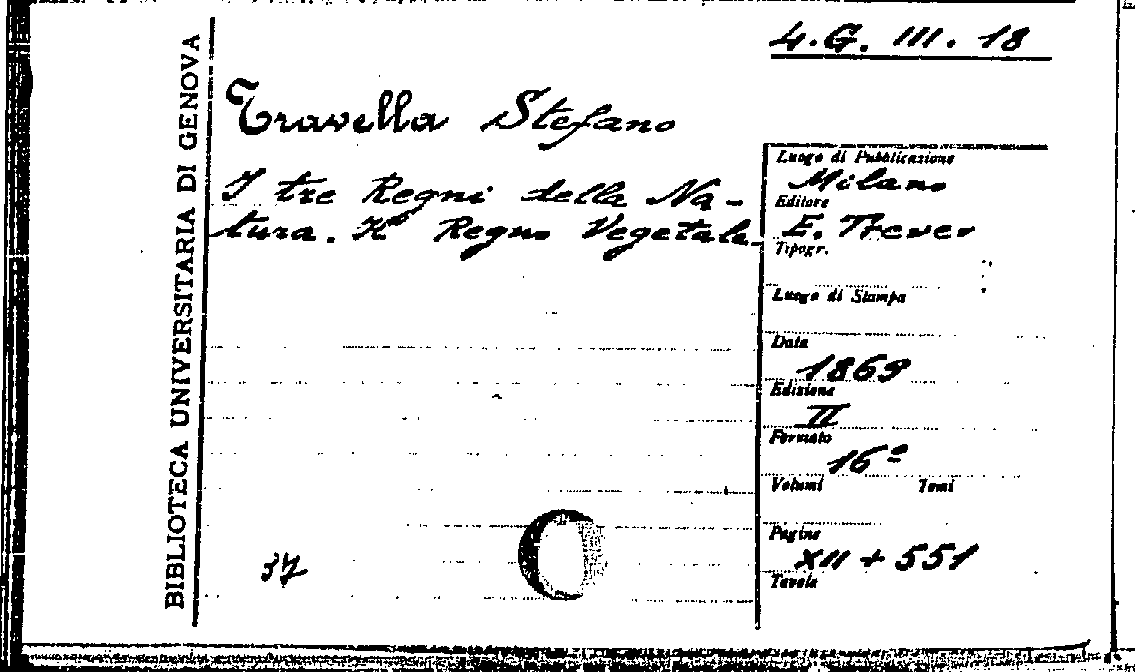 4.G. III. 18
BIBLIOTECA UNIVERSITARIA DI GENOVA
Travella Stefano
I tre Regni della Na-
tura. II° Regno Vegetale.
Luogo di Pubblicazione
Milano
Editore
E. Treves
Tipogr.
Luogo di Stampa
Data
1869
Edizione
II
Formato
16º
Volumi Tomi
Pagine
XII + 551
Tavole
37